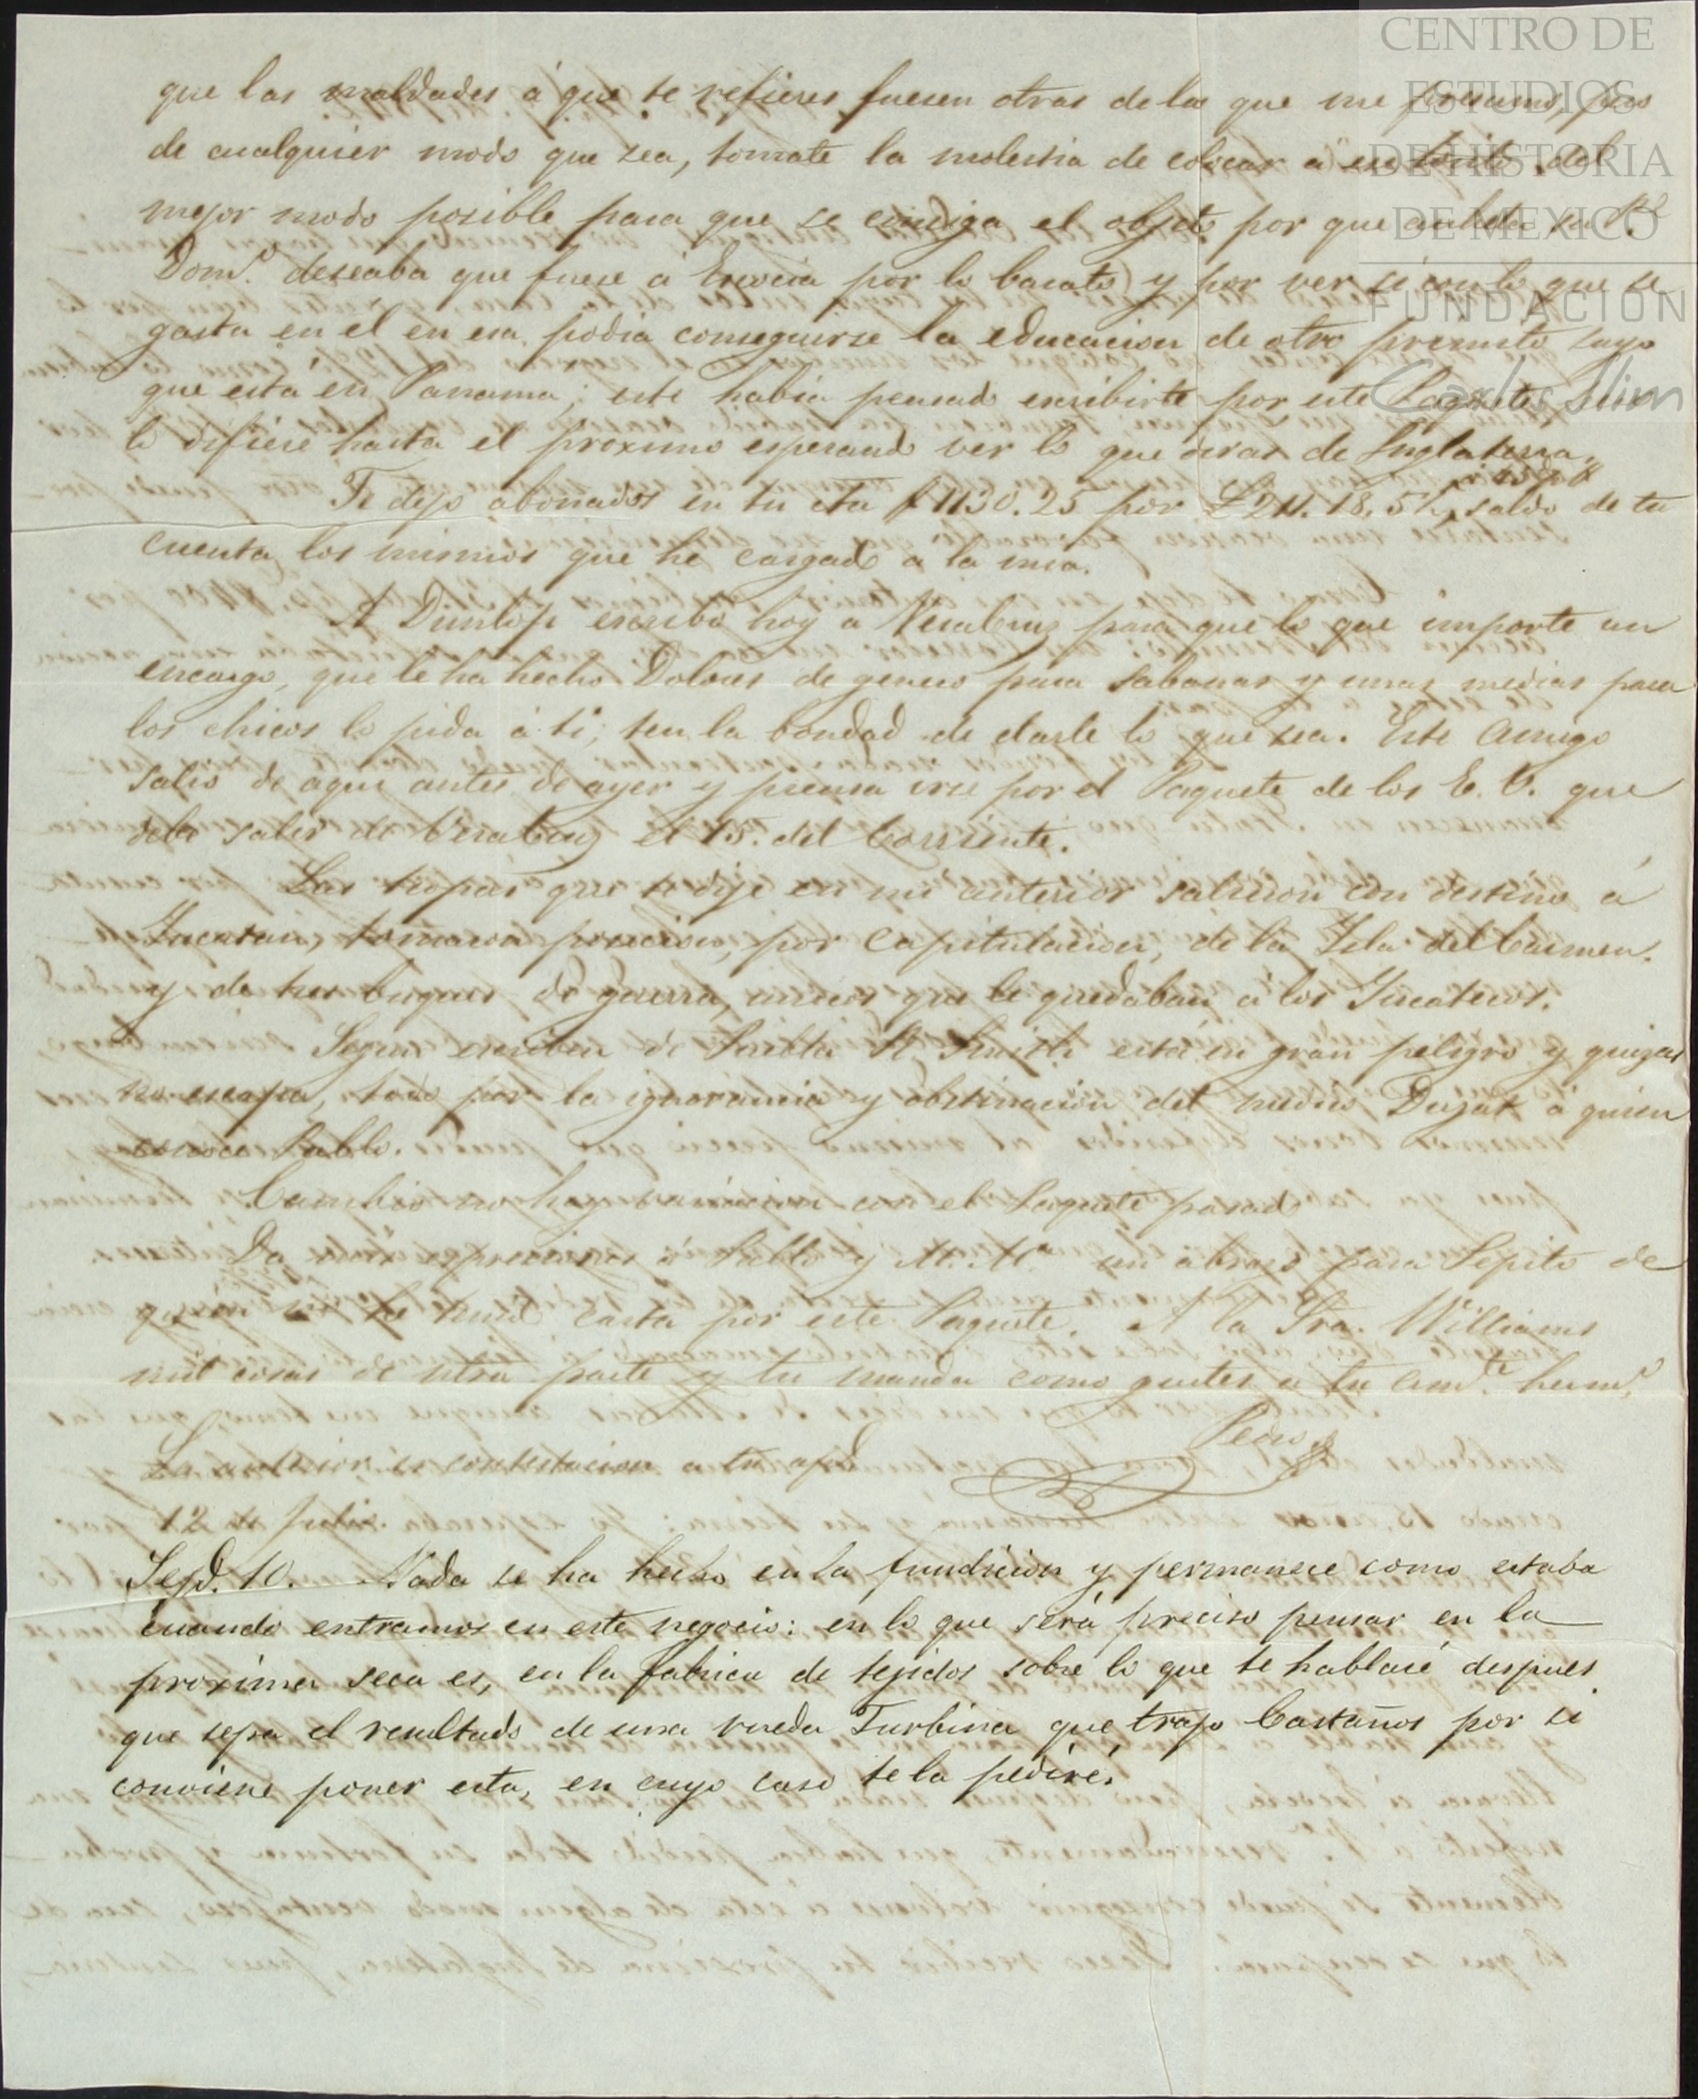 que las maldades á que te refieres fuesen otras de las que me presumo, pero
de cualquier modo que sea, tomate la molestia de colocar a ese del
mejor modo posible para que se consiga el objeto por que anhela su Pe
Domo. deseaba que fuese á Escocia por lo barato y por ver si con lo que se
gasta en el en esa, podia conseguirse la educacion de otro presunto suyo
que está en Panama; este habia pensado escribirte por este Paquete
lo difiere hasta el proximo esperando ver lo que diras de Inglaterra.
Te dejo abonados en tu cta $1130.25 por £211.18.5 saldo de tu
cuenta, los mismos que he cargado a la mia.
A Dunlop escribo hoy a VeraCruz para que lo que importe un
encargo, que le ha hecho Dolores de genero para sabanas y unas medias para
los chicos lo pida á ti; ten la bondad de darle lo que sea. Este Amigo
salio de aqui antes de ayer y piensa irse por el Paquete de los E. U. que
debe salir de VeraCruz el 15. del Corriente.
Las tropas que te dije en mi anterior salieron con destino á
Yucatan, tomaron posicion, por Capitulacion, de la Isla del Carmen.
y de tres buques de guerra, unicos que le quedaban á los Yucatecos.
Segun escriben de Puebla St Smith está en gran peligro y quizas
no escapa, todo por la ignorancia y obstinacion del medico Duzat á quien
conoce Pablo.
Cambio no hay variacion con el Paquete pasado
Da mis espresiones á Pablo y M. Ma un abrazo para Pepito de
quien no he tenido carta por este Paquete. A la Sra. Williams
mil cosas de ntra parte y tu manda como gustes a tu amte. hermo.
Pedro
La anterior es contestacion a tu apd
12 de Julio.
Sepd. 10. Nada se ha hecho en la fundicion y permanece como estaba
cuando entramos en este negocio: en lo que será preciso pensar en la
proxima seca es, en la fabrica de tejidos sobre lo que te hablaré despues
que sepa el resultado de una rueda Turbina que trajo Castaños por si
conviene poner esta, en cuyo caso te la pediré.
CENTRO DE
ESTUDIOS
DE HISTORIA
DE MEXICO
FUNDACIÓN
Carlos Slim